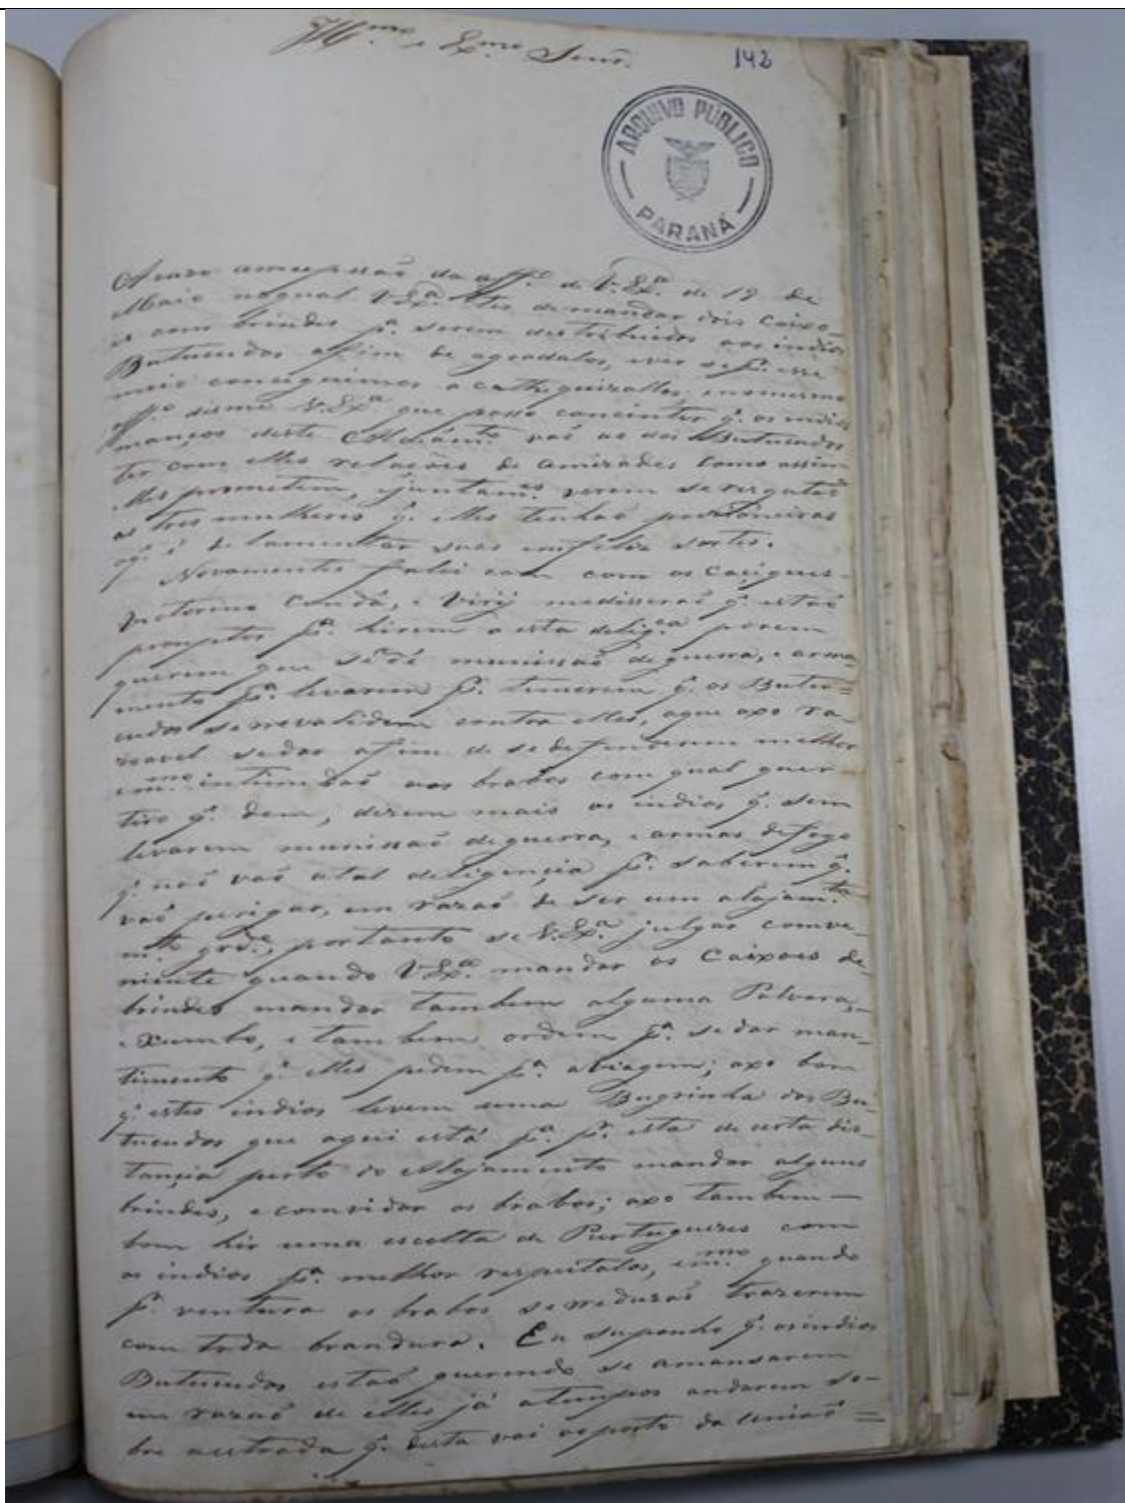 Ill.mo e Ex.mo Senr.
142
ARQUIVO PÚBLICO
PARANÁ
Acuso a recepssão do off.o de V. Ex.a de 19 de
Maio no qual V Ex.a de mandar dois Caixo-
es com brindes p.a serem destribuidos aos indios
Butucudos afim de agradalos, e ver se p.r esse
meio conseguimos a cathequizallos; e no mesmo
off.o disme V. Ex.a que posso concintir q. os indios
manços deste Aldeiam.to vaõ ao dos Butucudos
ter com elles relações de amizades como assim
elles prometem, e juntam.e verem se resgataõ
as tres mulheres q. elles tenhaõ prezioneiras
q. é de lamentar suas infelis sortes.
Novamente falei com os Caçiques
Victorino Condá, e Virij me disseraõ q. estaõ
promptos p.a hirem a esta delig.ca porem
querem que se dé munissaõ de guerra, e arma-
mento p.a levarem p.r temerem q. os Butu=
cudos se revalidem contra elles, aque axo ra-
zoavel sedar afim de se defenderem melhor
e m.mo intimidaõ aos brabos com qual quer
tiro q. dem, dizem mais os indios q. sem
levarem munissaõ de guerra, e armas de fogo
q. naõ vaõ atal deligençia p.r saberem q.
vaõ perigar, em razaõ de ser um alojam.to
m.to gr.de, portanto se V. Ex.a julgar comve-
niente quando V Ex.a mandar os Caixoes de
brindes mandar tambem alguma Polvora,
e Xumbo, e tambem ordem p.a se dar man-
timento q. elles pedem p.a aviagem; axo bom
q. estes indios levem uma Bugrinha dos Bu-
tucudos que aqui está p.a p.r esta de certa dis-
tançia perto do Alojamento mandar alguns
brindes, e comvidar os brabos; axo tambem
bom hir uma escolta de Portuguezes com
os indios p.a melhor respeitalos, e m.mo quando
p.r ventura os brabos se reduzaõ trazerem
com toda brandura. Eu suponho q. os indios
Butucudos estaõ querendo se amansarem
em razaõ de elles já atempos andarem so-
bre a estrada q. desta vai ao porto da Uniaõ =